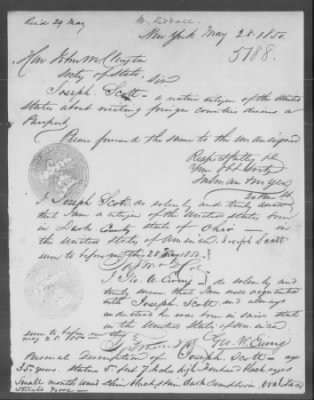 Recd 29 May
New York May 28. 1850
5188.
Hon John M. Clayton
Secty of State.
Sir
Joseph. Scott - a native citizen of the United
States about visiting foreign countries desires a
Passport
Please forward the same to the undersigned
Respectfully
Your Obt Servt
I Joseph Scott do solemnly and truly swear
that I am a citizen of the United States born
in Dark County State of Ohio - in
the United States of America. Joseph Scott
sworn to before me this 28 May 1850
I Geo. W. Ewing do solemnly and
truly swear that I am well acquainted
with Joseph. Scott and always
understood he was born in said state
in the United States of America
sworn to before me this
May 28. 1850
Geo. W. Ewing
Personal Description of Joseph. Scott - age
35 years. Stature 5 feet 7 inches high Forehead Black eyes
Small mouth round chin black hair Dark Complexion Oval face